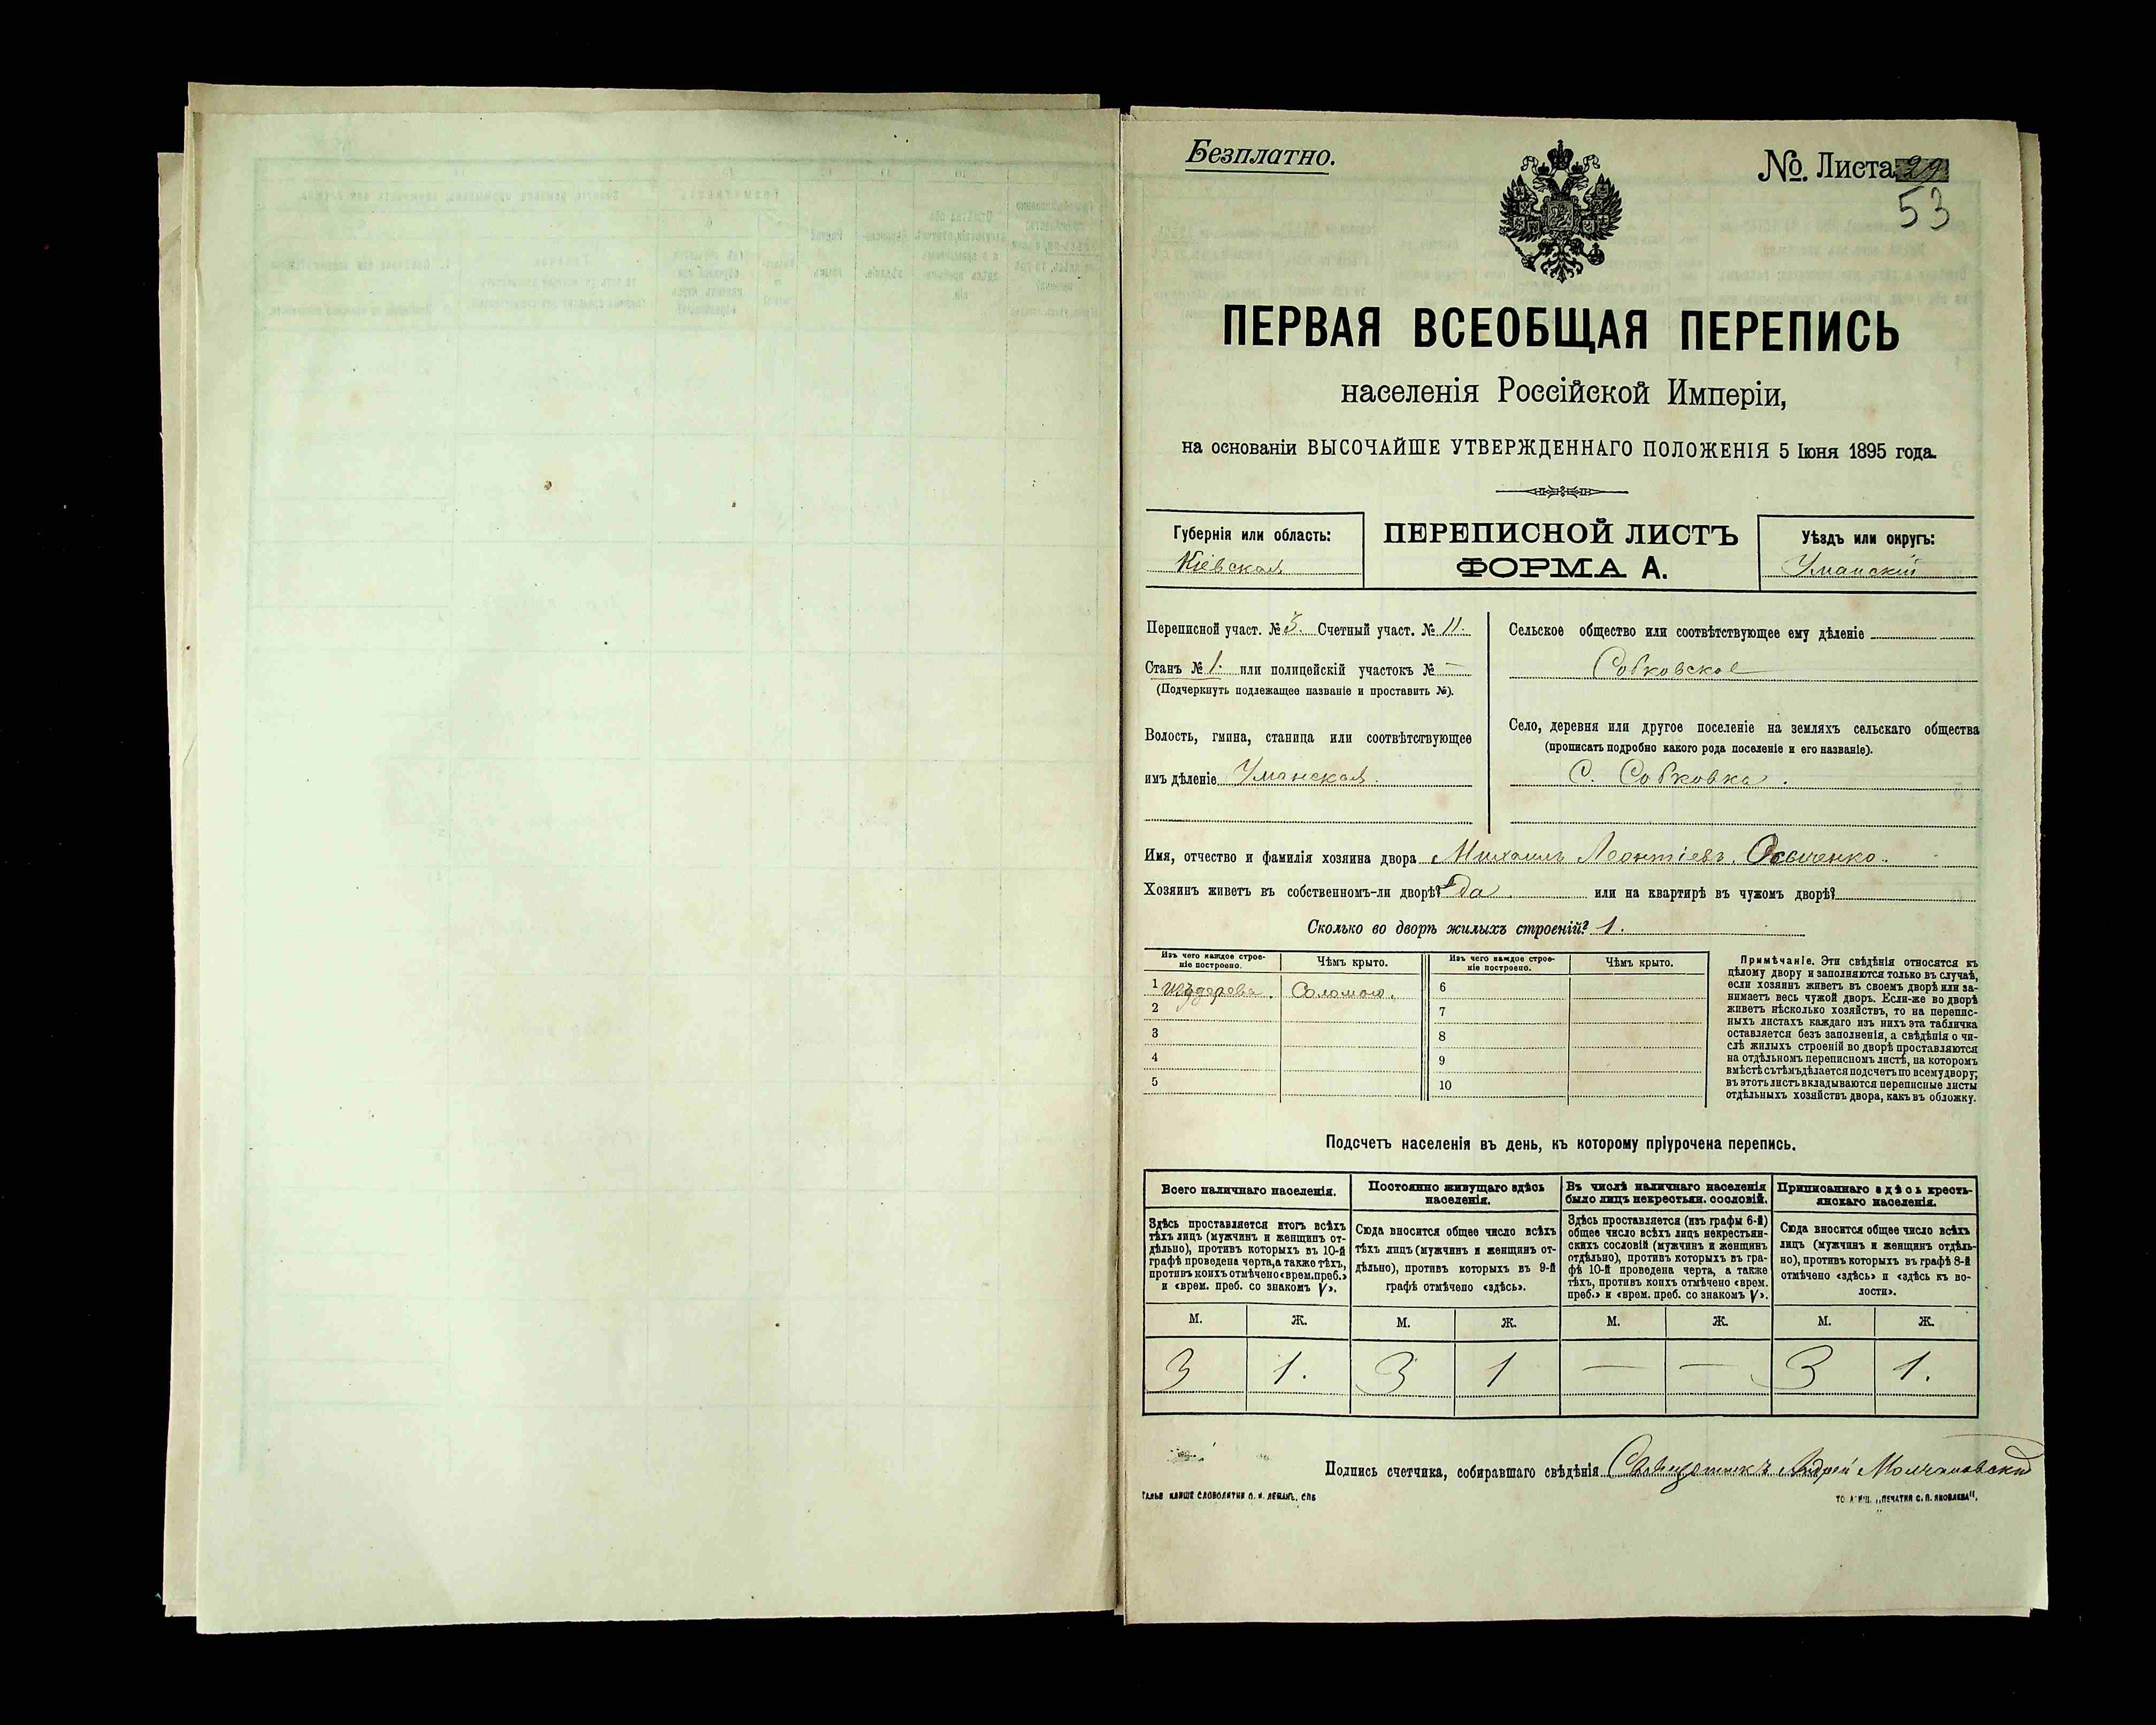 Безплатно.
№ Листа 29
53
ПЕРВАЯ ВСЕОБЩАЯ ПЕРЕПИСЬ
населенія Россійской Имперіи,
на основаніи ВЫСОЧАЙШЕ УТВЕРЖДЕННАГО ПОЛОЖЕНІЯ 5 Іюня 1895 года.
Губернія или область:
Кіевская
ПЕРЕПИСНОЙ ЛИСТЪ
ФОРМА А.
Уѣздъ или округъ:
Уманскій
Переписной участ. № 5. Счетный участ. № 11.
Станъ № 1. или полицейскій участокъ № —
(Подчеркнуть подлежащее названіе и проставить №).
Волость, гмина, станица или соотвѣтствующее
имъ дѣленіе Уманская.
Сельское общество или соотвѣтствующее ему дѣленіе
Собковское
Село, деревня или другое поселеніе на земляхъ сельскаго общества
(прописать подробно какого рода поселеніе и его названіе).
С. Собковка.
Имя, отчество и фамилія хозяина двора Михаилъ Леонтіевъ
Хозяинъ живетъ въ собственномъ-ли дворѣ? Да. или на квартирѣ въ чужомъ дворѣ?
Сколько во дворѣ жилыхъ строеній? 1.
Изъ чего каждое строе-
ніе построено.
Чѣмъ крыто.
Изъ чего каждое строе-
ніе построено.
Чѣмъ крыто.
1 Изъ дерева. Соломою. 6
2 7
3 8
4 9
5 10
Примѣчаніе. Эти свѣдѣнія относятся къ
цѣлому двору и заполняются только въ случаѣ,
если хозяинъ живетъ въ своемъ дворѣ или за-
нимаетъ весь чужой дворъ. Если-же во дворѣ
живетъ нѣсколько хозяйствъ, то на перепис-
ныхъ листахъ каждаго изъ нихъ эта табличка
оставляется безъ заполненія, а свѣдѣнія о чи-
слѣ жилыхъ строеній во дворѣ проставляются
на отдѣльномъ переписномъ листѣ, на которомъ
вмѣстѣ съ тѣмъ дѣлается подсчетъ по всему двору;
въ этотъ листъ вкладываются переписные листы
отдѣльныхъ хозяйствъ двора, какъ въ обложку.
Подсчетъ населенія въ день, къ которому пріурочена перепись.
Всего наличнаго населенія.
Здѣсь проставляется итогъ всѣхъ
тѣхъ лицъ (мужчинъ и женщинъ от-
дѣльно), противъ которыхъ въ 10-й
графѣ проведена черта, а также тѣхъ,
противъ коихъ отмѣчено «врем. преб.»
и «врем. преб. со знакомъ V».
Постоянно живущаго здѣсь
населенія.
Сюда вносится общее число всѣхъ
тѣхъ лицъ (мужчинъ и женщинъ от-
дѣльно), противъ которыхъ въ 9-й
графѣ отмѣчено «здѣсь».
Въ числѣ наличнаго населенія
было лицъ некрестьян. сословій.
Здѣсь проставляется (изъ графы 6-й)
общее число всѣхъ лицъ некрестьян-
скихъ сословій (мужчинъ и женщинъ
отдѣльно), противъ которыхъ въ гра-
фѣ 10-й проведена черта, а также
тѣхъ, противъ коихъ отмѣчено «врем.
преб.» и «врем. преб. со знакомъ V».
Приписаннаго здѣсь кресть-
янскаго населенія.
Сюда вносится общее число всѣхъ
лицъ (мужчинъ и женщинъ отдѣль-
но), противъ которыхъ въ графѣ 8-й
отмѣчено «здѣсь» и «здѣсь къ во-
лости».
М. Ж. М. Ж. М. Ж. М. Ж.
3 1. 3 1 — — 3 1.
Подпись счетчика, собиравшаго свѣдѣнія Священникъ Андрей Молчановскій
КЛИШЕ СЛОВОЛИТНИ О. И. ЛЕМАНЪ, СПБ
„ПЕЧАТНЯ С. П. ЯКОВЛЕВА“.